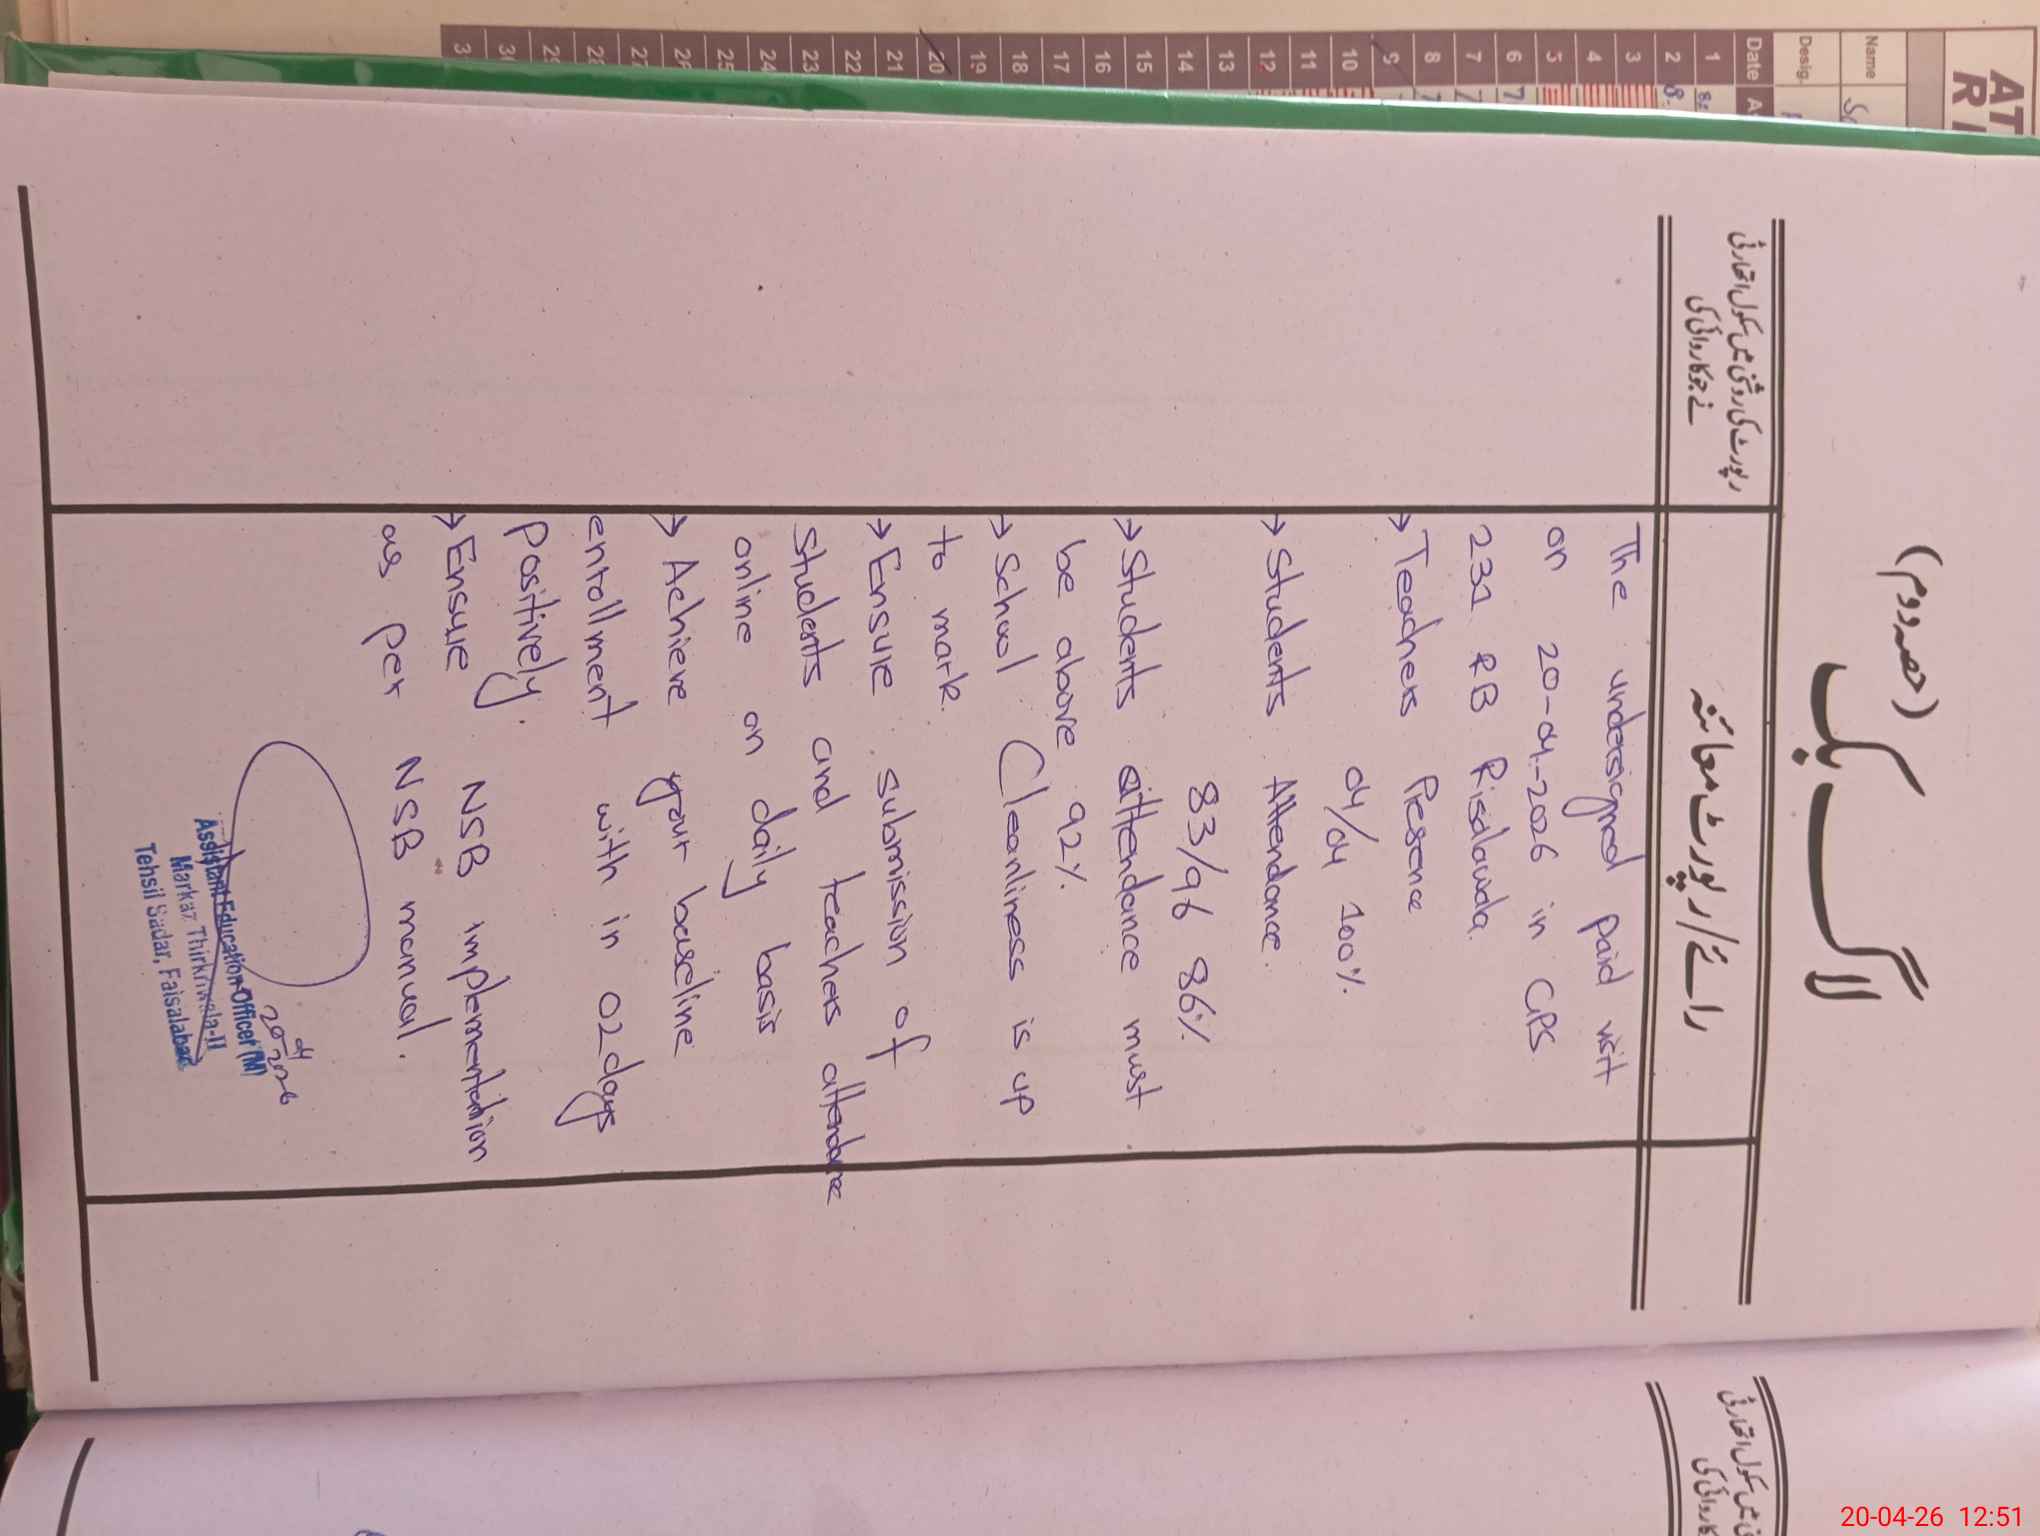 لاگ بک
(حصہ دوم)
رائے/رپورٹ معائنہ
رپورٹ کی روشنی میں سکول اتھارٹی
نے جو کاروائی کی
The undersigned paid visit
on 20-04-2026 in GPS
231 RB Risalawda.
→ Teachers Presence
04/04 100%.
→ Students Attendance.
83/96 86%.
→ Students attendance must
be above 92%.
→ School Cleanliness is up
to mark.
→ Ensure submission of
Students and teachers attendance
online on daily basis
→ Achieve your baseline
enrollment with in 02 days
Positively.
→ Ensure NSB implementation
as per NSB manual.
20-04-2026
Assistant Education Officer (M)
Markaz Thirkriwala-II
Tehsil Sadar, Faisalabad
AT
R
Name
Desig.
Date
1
2
3
4
5
6
7
8
9
10
11
12
13
14
15
16
17
18
19
20
21
22
23
24
25
26
27
28
29
سکول اتھارٹی
20-04-26 12:51